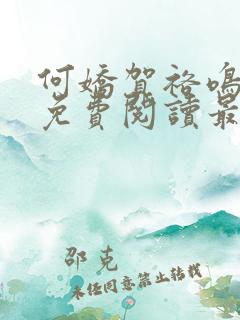 何嬌賀袼鳴
免費閱讀最
邵克
未經同意禁止轉載